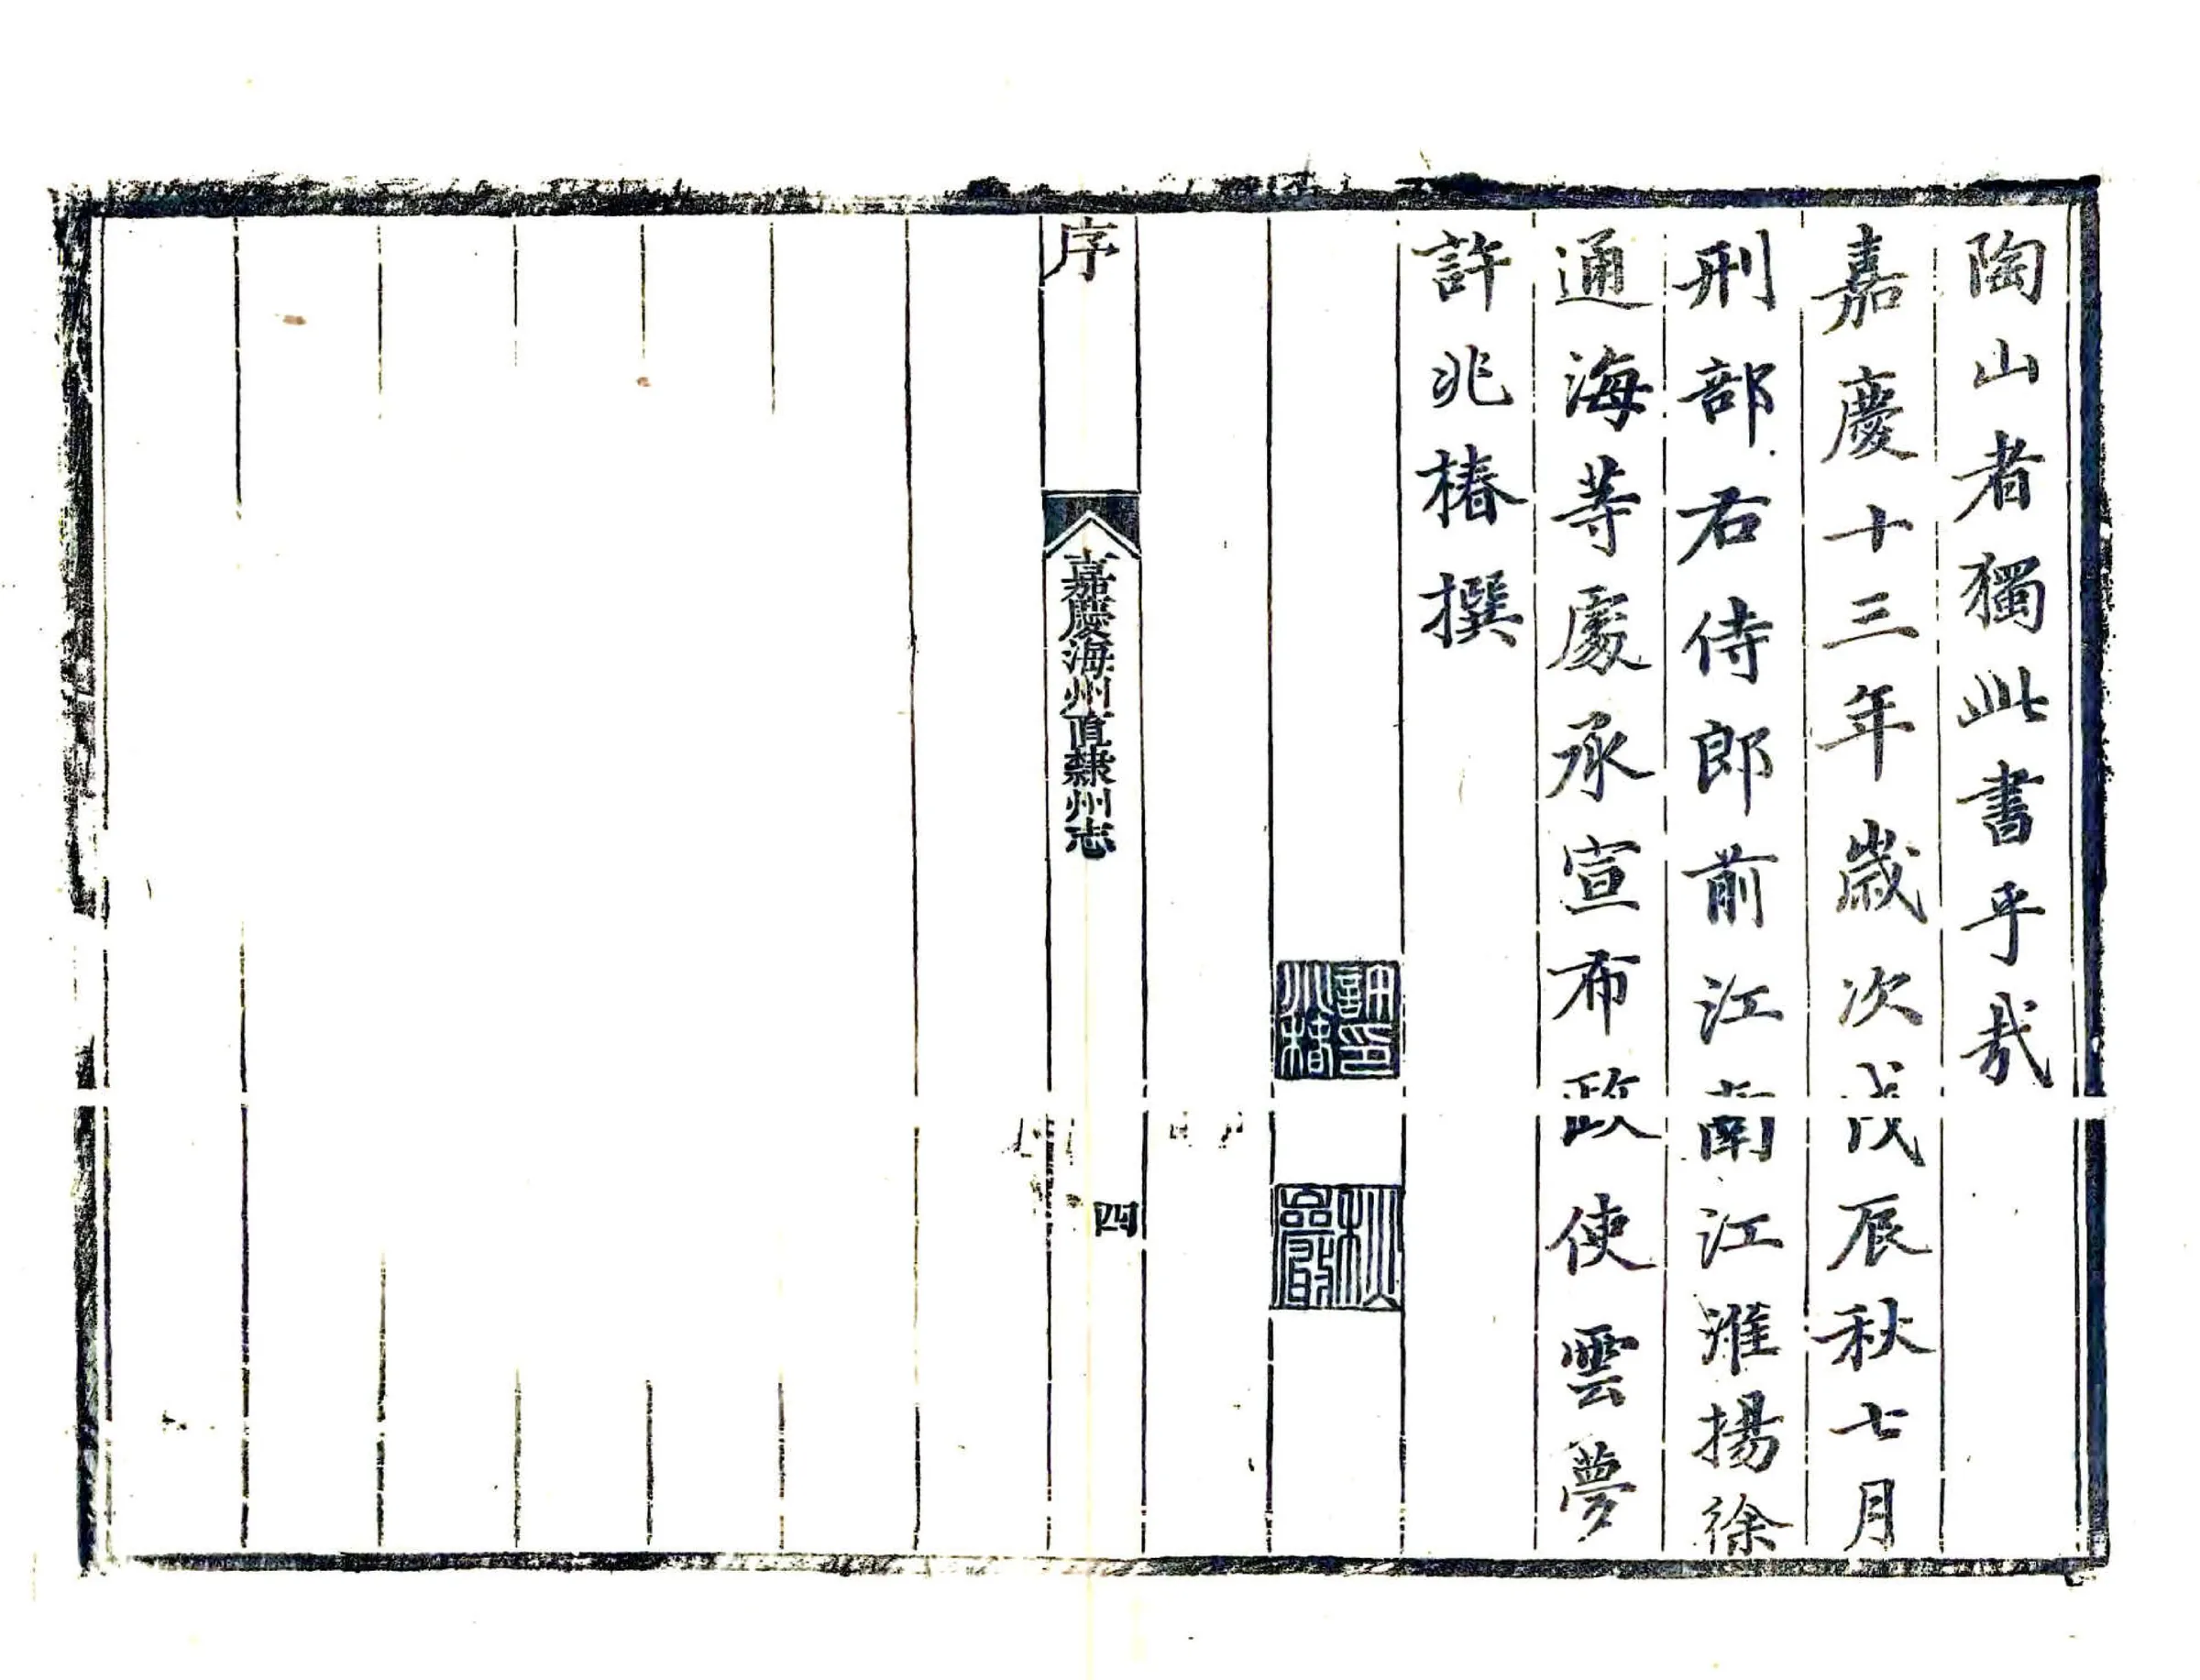 陶山者獨此書乎哉
嘉慶十三年歲次戊辰秋七月
刑部右侍郎前江南江淮揚徐
通海等處承宣布政使雲夢
許兆椿撰
許印兆椿
秋巖
序
嘉慶海州直隸州志
四